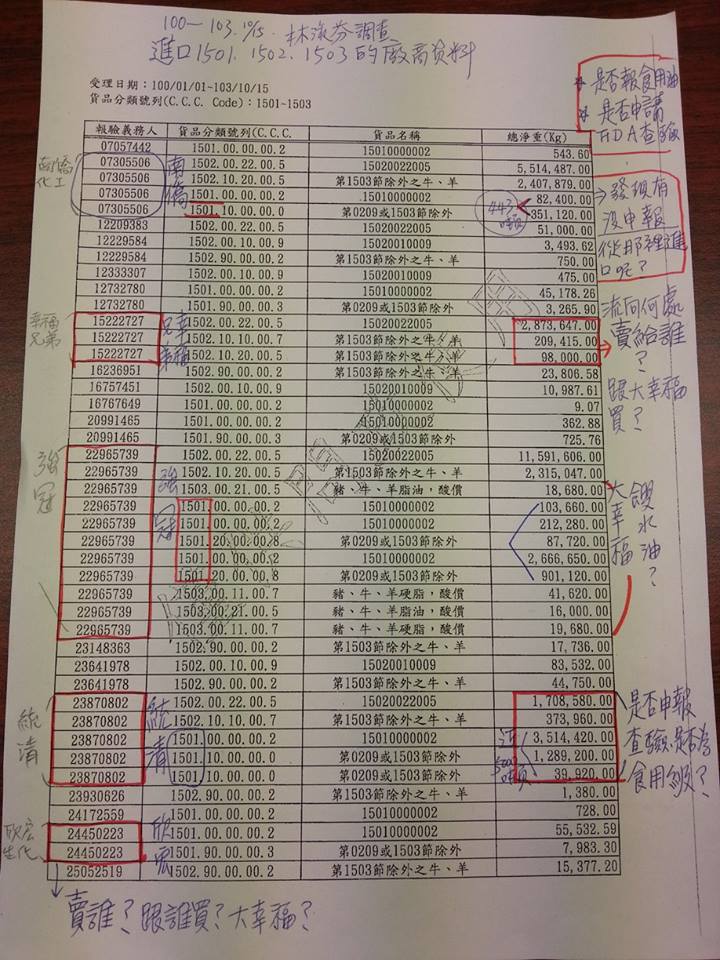 100－103.10/15.林淑芬調查
進口1501、1502、1503的廠商資料
受理日期：100/01/01~103/10/15
貨品分類號列(C.C.C. Code)：1501~1503
* 是否報食用油
* 是否申請
FDA查驗
報驗義務人 貨品分類號列(C.C.C. 貨品名稱 總淨重(Kg)
07057442 1501.00.00.00.2 15010000002 543.60
07305506 1502.00.22.00.5 15020022005 5,514,487.00
07305506 1502.10.20.00.5 第1503節除外之牛、羊 2,407,879.00
07305506 1501.00.00.00.2 15010000002 82,400.00
07305506 1501.10.00.00.0 第0209或1503節除外 351,120.00
12209383 1502.00.22.00.5 15020022005 51,000.00
12229584 1502.00.10.00.9 15020010009 3,493.62
12229584 1502.90.00.00.2 第1503節除外之牛、羊 750.00
12333307 1502.00.10.00.9 15020010009 475.00
12732780 1501.00.00.00.2 15010000002 45,178.26
12732780 1501.90.00.00.3 第0209或1503節除外 3,265.90
15222727 1502.00.22.00.5 15020022005 2,873,647.00
15222727 1502.10.10.00.7 第1503節除外之牛、羊 209,415.00
15222727 1502.10.20.00.5 第1503節除外之牛、羊 98,000.00
16236951 1502.90.00.00.2 第1503節除外之牛、羊 23,806.58
16757451 1502.00.10.00.9 15020010009 10,987.61
16767649 1501.00.00.00.2 15010000002 9.07
20991465 1501.00.00.00.2 15010000002 362.88
20991465 1501.90.00.00.3 第0209或1503節除外 725.76
22965739 1502.00.22.00.5 15020022005 11,591,606.00
22965739 1502.10.20.00.5 第1503節除外之牛、羊 2,315,047.00
22965739 1503.00.21.00.5 豬、牛、羊脂油，酸價 18,680.00
22965739 1501.00.00.00.2 15010000002 103,660.00
22965739 1501.00.00.00.2 15010000002 212,280.00
22965739 1501.20.00.00.8 第0209或1503節除外 87,720.00
22965739 1501.00.00.00.2 15010000002 2,666,650.00
22965739 1501.20.00.00.8 第0209或1503節除外 901,120.00
22965739 1503.00.11.00.7 豬、牛、羊硬脂，酸價 41,620.00
22965739 1503.00.21.00.5 豬、牛、羊脂油，酸價 16,000.00
22965739 1503.00.11.00.7 豬、牛、羊硬脂，酸價 19,680.00
23148363 1502.90.00.00.2 第1503節除外之牛、羊 17,736.00
23641978 1502.00.10.00.9 15020010009 83,532.00
23641978 1502.90.00.00.2 第1503節除外之牛、羊 44,750.00
23870802 1502.00.22.00.5 15020022005 1,708,580.00
23870802 1502.10.10.00.7 第1503節除外之牛、羊 373,960.00
23870802 1501.00.00.00.2 15010000002 3,514,420.00
23870802 1501.10.00.00.0 第0209或1503節除外 1,289,200.00
23870802 1501.10.00.00.0 第0209或1503節除外 39,920.00
23930626 1502.90.00.00.2 第1503節除外之牛、羊 1,380.00
24172559 1501.00.00.00.2 15010000002 728.00
24450223 1501.00.00.00.2 15010000002 55,532.59
24450223 1501.90.00.00.3 第0209或1503節除外 7,983.30
25052519 1502.90.00.00.2 第1503節除外之牛、羊 15,377.20
南僑
化工
南僑
發現有
沒申報
從那裡進
口呢？
幸福
兄弟
流向何處
賣給誰
？
跟大幸福
買？
強冠
強冠
餿水油？
大幸福
統清
統清
是否申報
查驗、是否為
食用級？
欣宏
生化
欣宏
賣誰？跟誰買？大幸福？